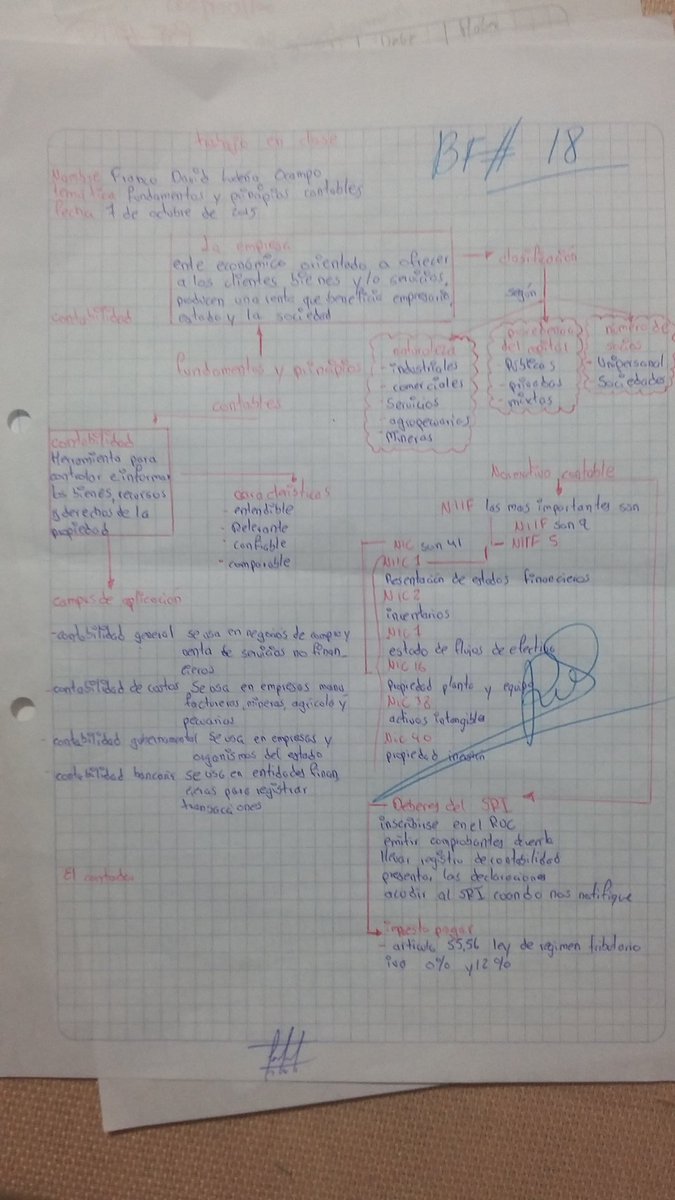 Debe | Haber
trabajo en clase
BF# 18
Nombre Franco David Ludeña Ocampo
temática fundamentos y principios contables
fecha 7 de octubre de 2015
La empresa
ente económico orientado a ofrecer
a los clientes, bienes y/o servicios,
producen una renta que beneficia empresario,
estado y la sociedad
clasificación
según
contabilidad
naturaleza
- industriales
- comerciales
- Servicios
- agropecuarias
- Mineras
procedencia
del capital
- Públicas
- privadas
- mixtas
número de
socios
- Unipersonal
- Sociedades
fundamentos y principios
contables
contabilidad
Herramienta para
controlar e informar
los bienes, recursos
y derechos de la
propiedad
características
- entendible
- Relevante
- confiable
- comparable
campos de aplicación
- contabilidad general se usa en negocios de compra y
venta de servicios no finan_
cieros
- contabilidad de costos Se usa en empresas manu_
factureras, mineras, agrícola y
pecuarias
- contabilidad gubernamental se usa en empresas y
organismos del estado
- contabilidad bancaria se usa en entidades finan_
cieras para registrar
transacciones
El contador
Normativa contable
NIIF las mas importantes son
NIIF son 9
- NIIF 5
NIC son 41
NIIC 1
Presentación de estados financieros
NIC 2
inventarios
NIC 7
estado de flujos de efectivo
NIC 16
Propiedad planta y equipo
NIC 38
activos intangible
NIC 40
propiedad inversión
- Deberes del SRI
inscribirse en el RUC
emitir comprobantes de venta
llevar registro de contabilidad
presentar las declaraciones
acudir al SRI cuando nos notifique
impuesto pagar
- artículo 55,56 ley de regimen tributario
iva 0% y 12%